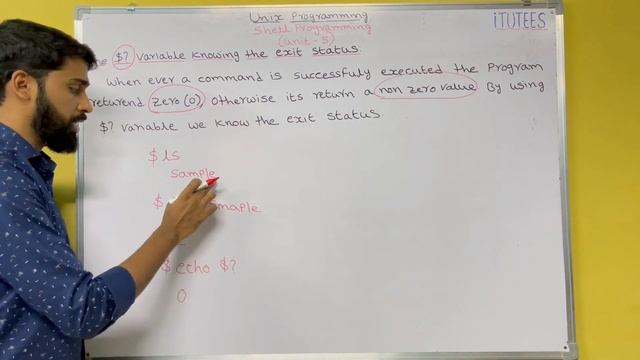 Unix Programming
iTUTEES
Shell Programming
(Unit-5)
$? Variable knowing the exit status:
when ever a command is successfuly executed the Program
returend zero(0), otherwise its return a non zero value By using
$? variable we know the exit status
$ ls
sample
$
$ echo $?
0